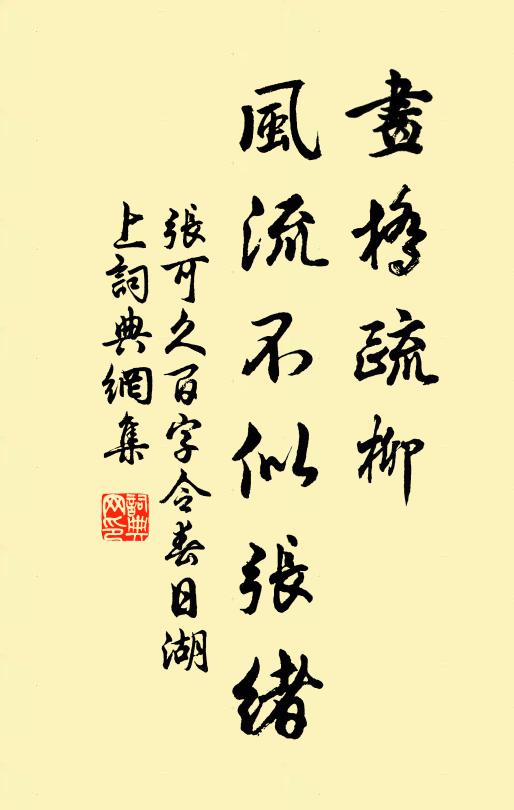 畫橋疏柳
風流不似張緒
張可久百字令春日湖
上詞典網集
詞典
网印